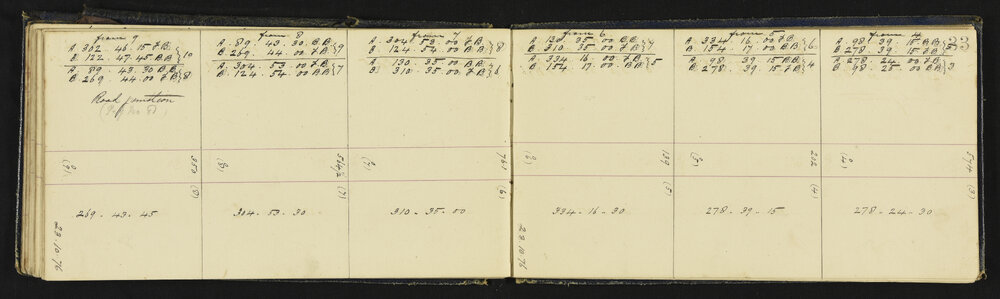 from 9
A 302 . 46 . 15 F.B. } 10
B 122 . 47 . 45 B.B.
A 89 . 43 . 30 B.B. } 8
B 269 . 44 . 00 F.B.
Road junction
from 8
A . 89 . 43 . 30 B.B. } 9
B . 269 . 44 . 00 F.B.
A 304 . 53 . 00 F.B. } 7
B 124 . 54 . 00 B.B.
from 7
A . 304 . 53 . 00 F.B. } 8
B . 124 . 54 . 00 B.B.
A 130 . 35 . 00 B.B. } 6
B 310 . 35 . 00 F.B.
from 6
A . 130 . 35 . 00 B.B. } 7
B . 310 . 35 . 00 F.B.
A . 334 . 16 . 00 F.B. } 5
B . 154 . 17 . 00 B.B.
from 5
A . 334 . 16 . 00 F.B. } 6
B . 154 . 17 . 00 B.B.
A . 98 . 39 . 15 B.B. } 4
B . 278 . 39 . 15 F.B.
from 4
A . 98 . 39 . 15 B.B. } 5
B . 278 . 39 . 15 F.B.
A . 278 . 24 . 00 F.B. } 3
B . 98 . 25 . 00 B.B.
23
(9)
350
(8)
564½
(7)
761
(6)
139
(5)
202
(4)
574
(8)
(7)
(6)
(5)
(4)
(3)
269 . 43 . 45
304 . 53 . 30
310 . 35 . 00
334 . 16 . 30
278 . 39 . 15
278 . 24 . 30
23.10.76
23.10.76